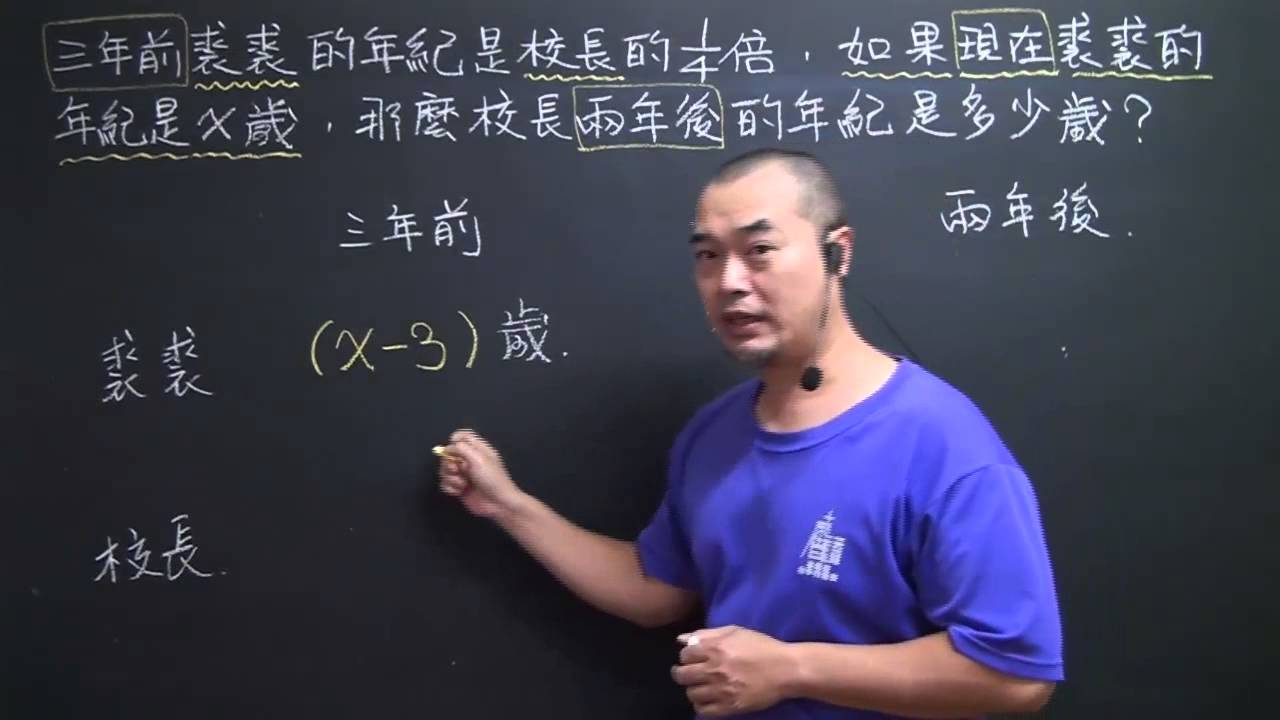 三年前裘裘的年紀是校長的1/4倍，如果現在裘裘的
年紀是x歲，那麼校長兩年後的年紀是多少歲？
三年前
兩年後.
裘裘
(x-3)歲.
校長.